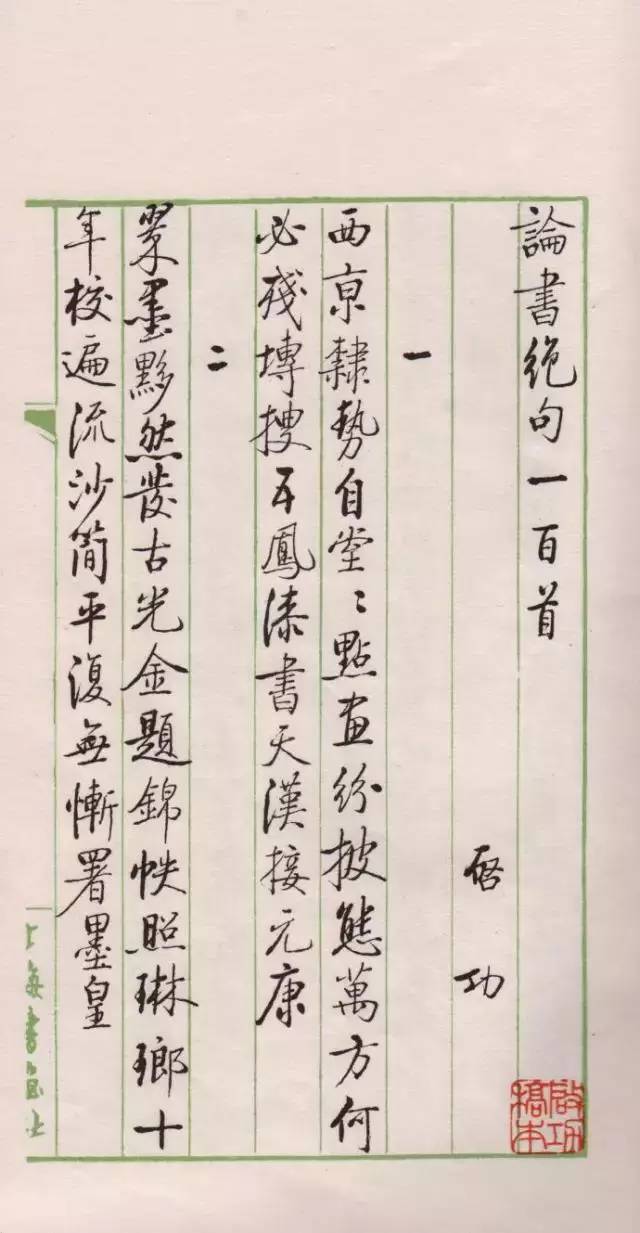 論書絶句一百首
啓功
一
西京隸勢自堂〻點畫紛披態萬方何
必殘塼搜五鳳漆書天漢接元康
二
翠墨黟然發古光金題錦帙照琳瑯十
年校遍流沙簡平復無慚署墨皇
啟功
上海書畫社